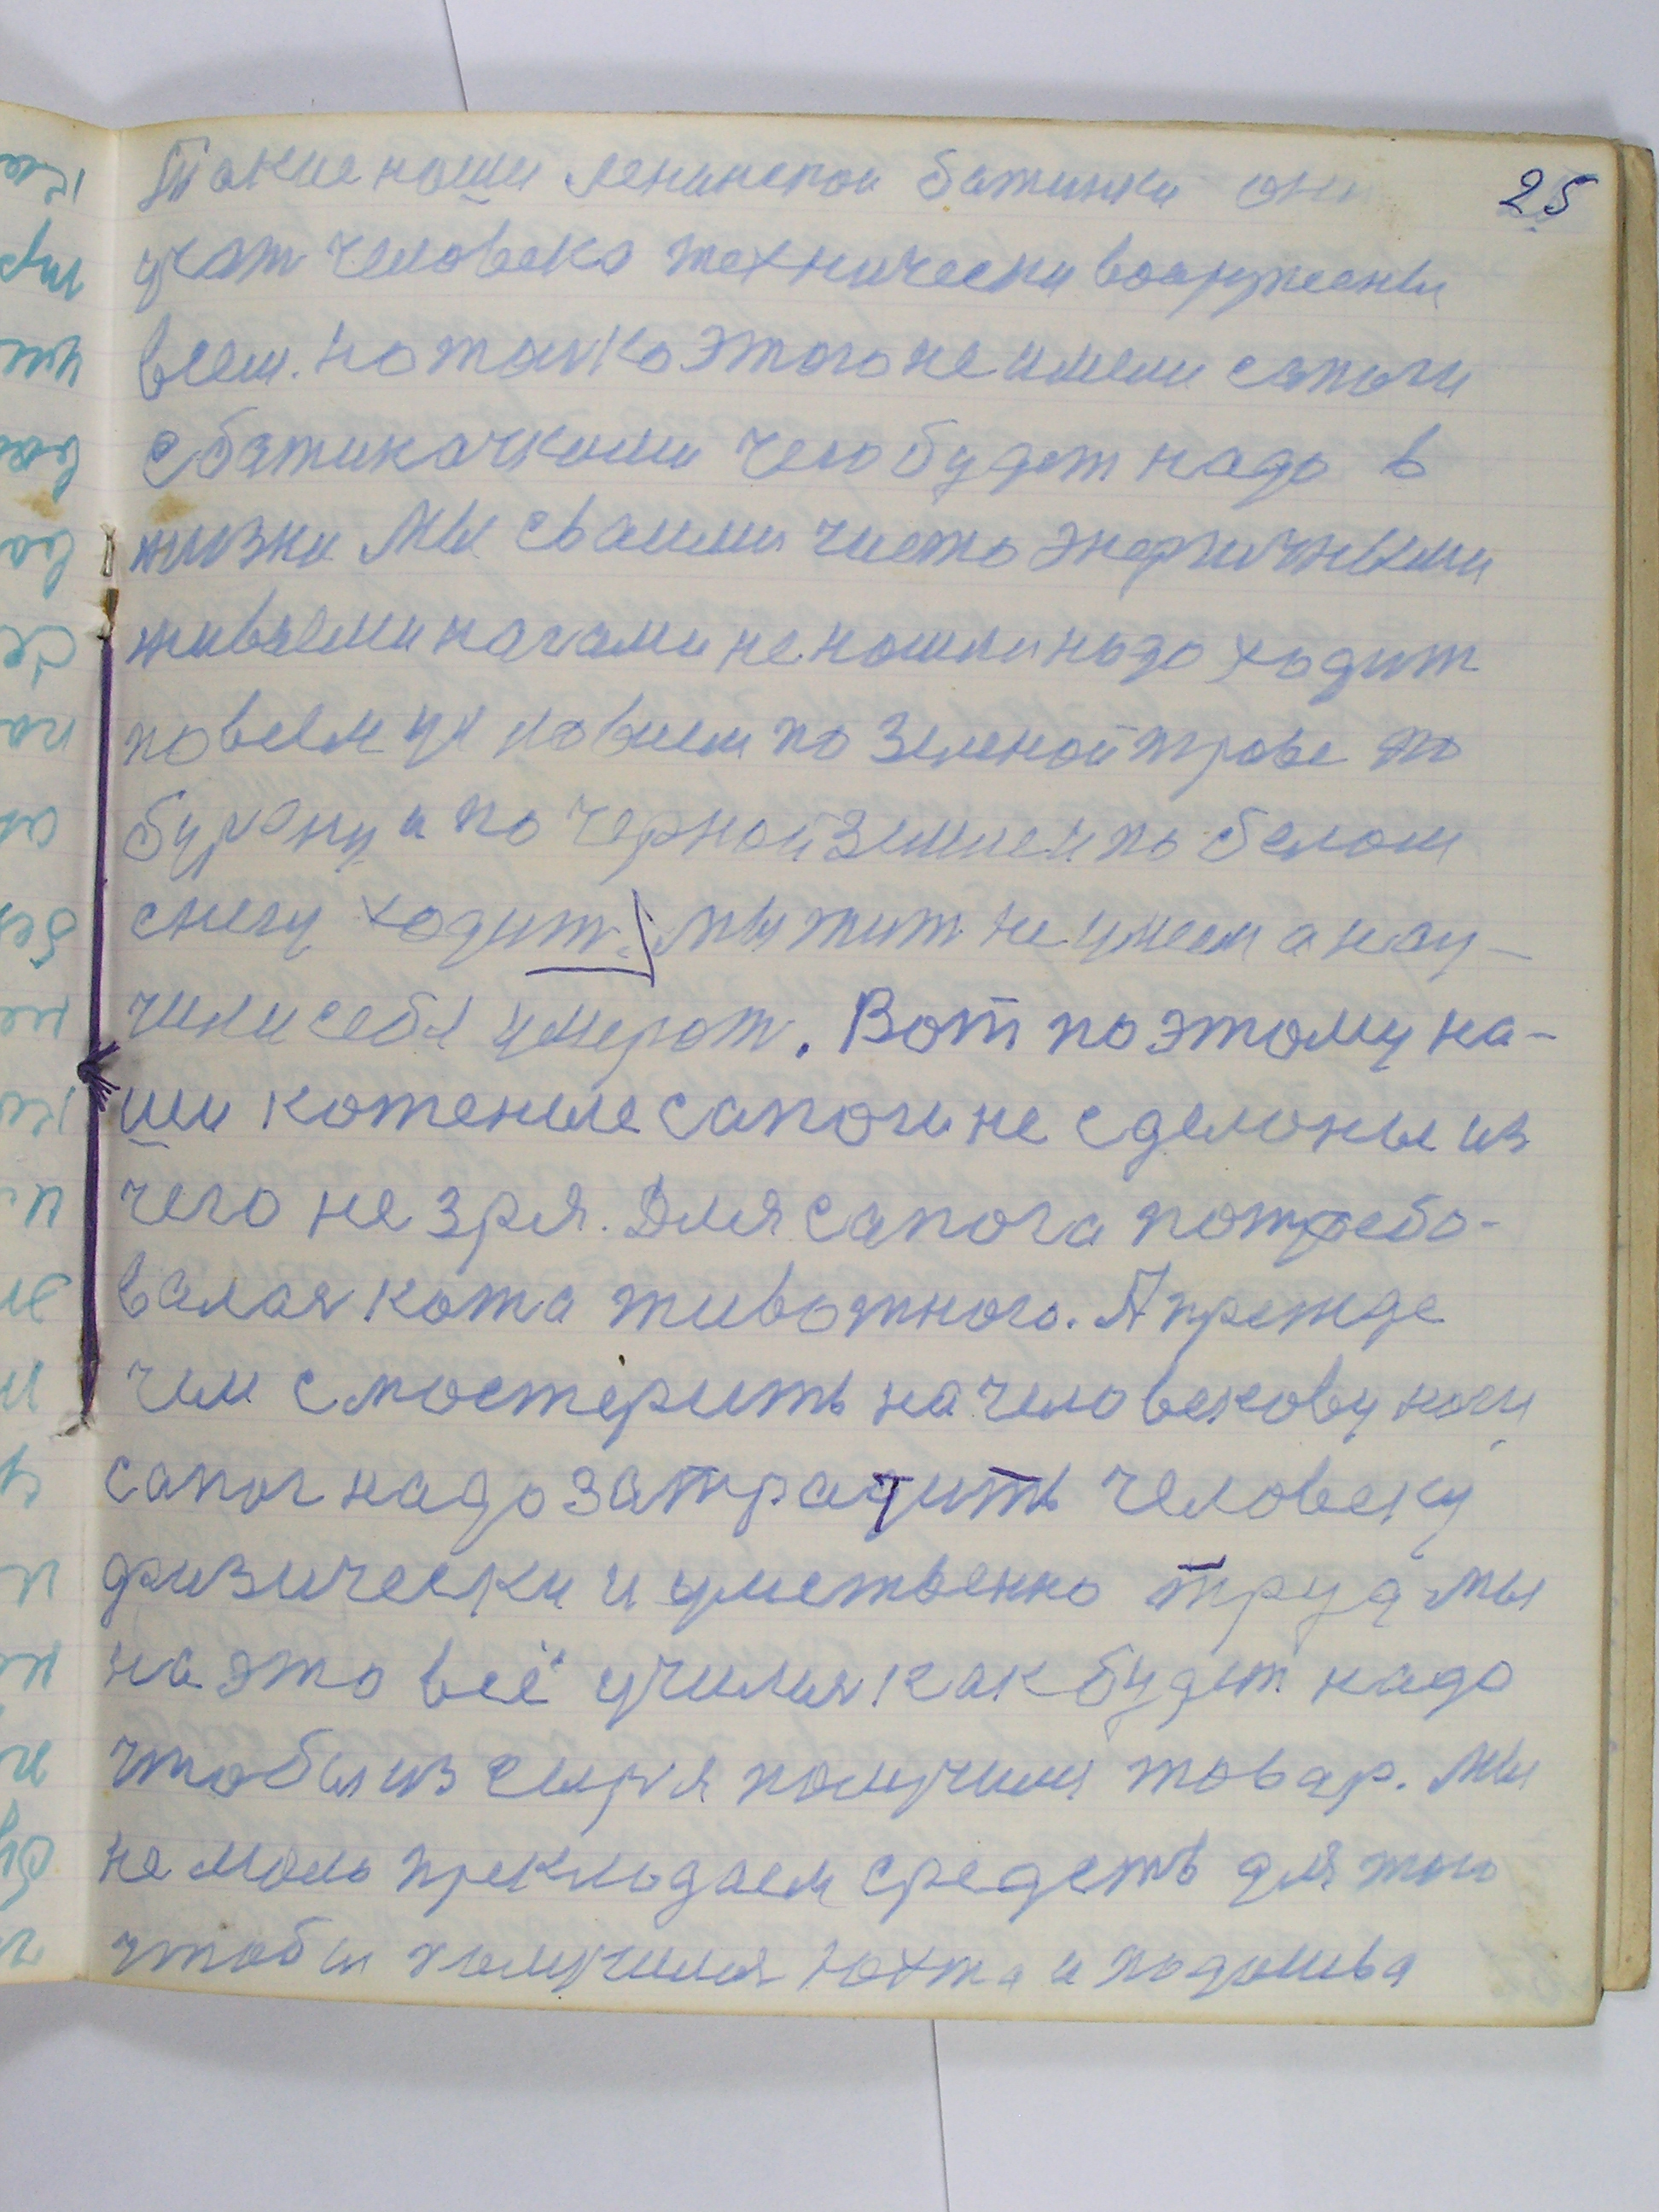 25
Такие наши ленински батинки они
учат человека технически вооружены
всем. но только этого не имели сапоги
с батиначками чего будет надо в
жизни Мы сваими чисто энергичными
живыеми ногами не пошли надо ходит
по всем условием по зеленой траве по
буряну и по черной земли и по белом
снегу ходит. мы жит не умеем а нау-
чили себя умерат. Вот поэтому на-
ши коженые сапоги не сделоны из
чего не зря. Для сапога потребо-
валася кожа животного. А прежде
чем смостерить на человекову ногу
сапог надо затратить человеку
физически и умственно труд мы
на это всё училися как будет надо
чтобы из сыря получили товар. Мы
не мало прекладаем средств для того
чтобы получился юхта и подошва